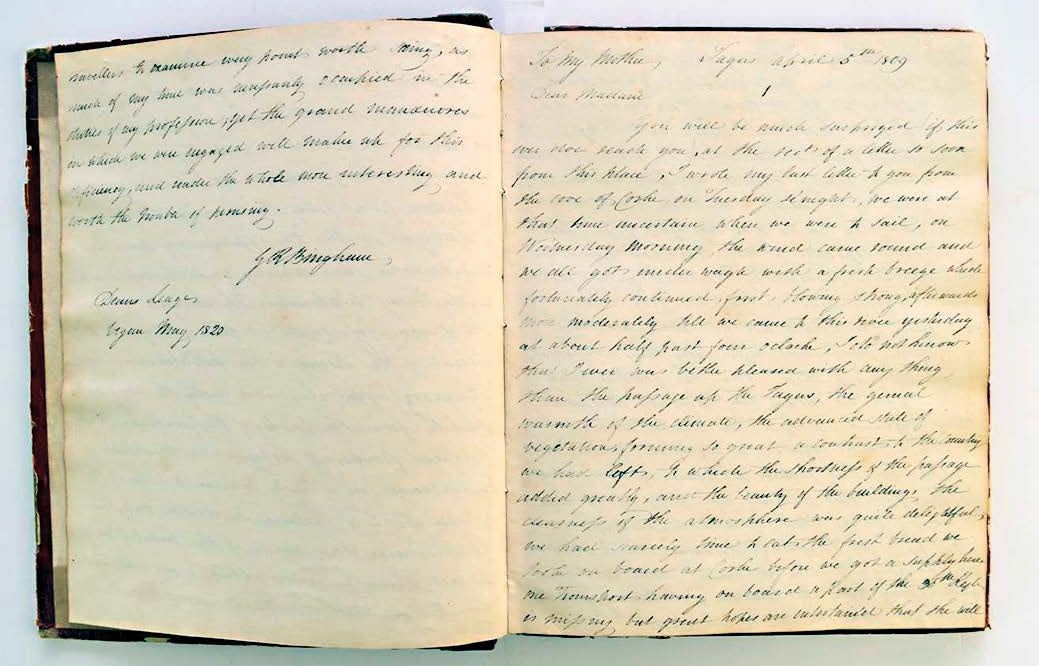 travellers to examine every point worth seeing, as
much of my time was necessarily occupied in the
duties of my profession, yet the grand manœuvres
in which we were engaged will make up for this
deficiency, and render the whole more interesting and
worth the trouble of perusing.
G R Bingham
Deans Leaze
began May 1820
To My Mother, Tagus april 5th 1809
Dear Madam 1
you will be much surprized if this
ever does reach you, at the rect of a letter so soon
from this place, I wrote my last letter to you from
the cove of Corke on Tuesday se'night, we were at
that time uncertain when we were to sail, on
Wednesday morning the wind came round and
we all got under weigh with a fresh breeze which
fortunately continued first blowing strong, afterwards
more moderately till we came to this river yesterday
at about half past four oclock, I do not know
that I ever was better pleased with any thing
than the passage up the Tagus, the genial
warmth of the climate, the advanced state of
vegetation, forming so great a contrast to the Country
we had left, to which the shortness of the passage
added greatly, and the beauty of the buildings, the
clearness of the atmosphere was quite delightful,
we had scarcely time to eat the fresh bread we
took on board at Corke before we got a supply here
one Transport having on board a part of the Regt
is missing but great hopes are entertained that she will